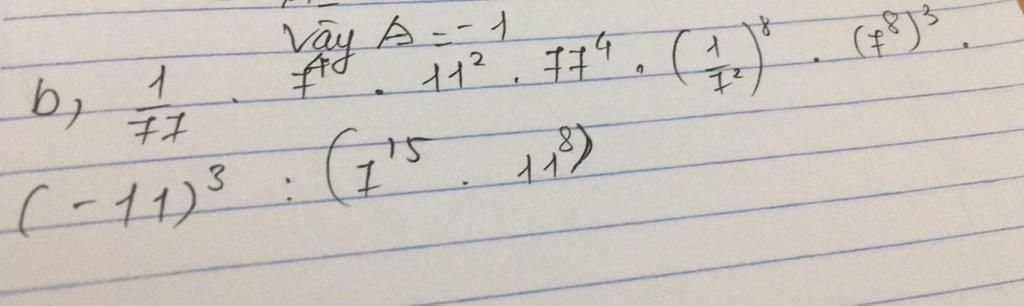 Vậy A = -1
b, 1/77 . 7^4 . 11^2 . 77^4 . (1/7^2)^8 . (7^8)^3 .
(-11)^3 : (7^15 . 11^8)